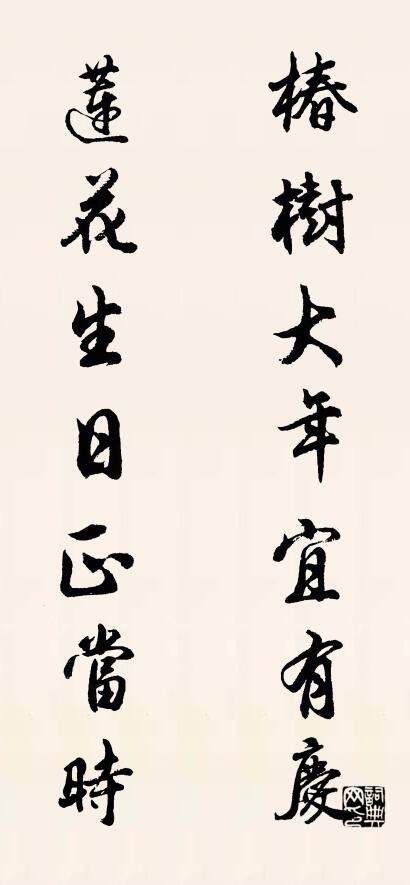 椿樹大年宜有慶
蓮花生日正當時
詞典網